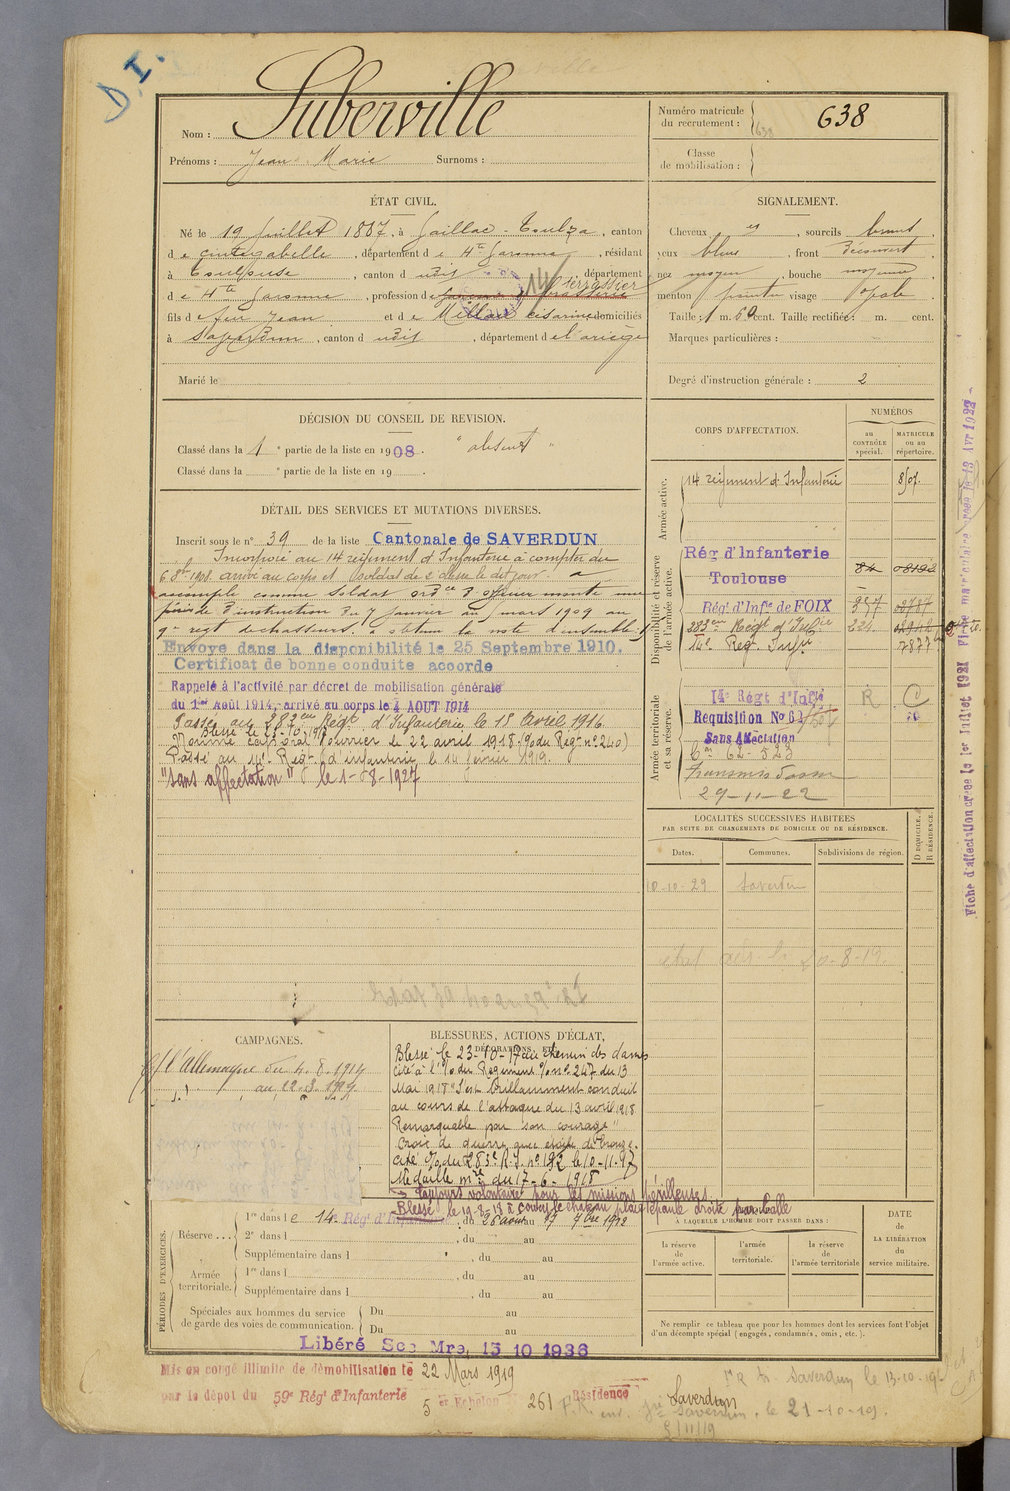 D. I.
Nom : Suberville
Prénoms : Jean Marie Surnoms :
Numéro matricule du recrutement : 638
638
Classe de mobilisation :
ÉTAT CIVIL.
Né le 19 Juillet 1887, à Gaillac-Toulza, canton
de Cintegabelle, département de Hte Garonne, résidant
à Toulouse, canton d udit, département
14 terrassier
de Hte Garonne, profession de
fils de feu Jean et de Millau domiciliés
à Saverdun, canton d udit, département de l'ariège
Marié le
SIGNALEMENT.
Cheveux et, sourcils bruns,
yeux bleus, front découvert
nez moyen, bouche moyenne
menton pointu visage ovale.
Taille : 1 m. 60 cent. Taille rectifiée : m. cent.
Marques particulières :
Degré d'instruction générale : 2
DÉCISION DU CONSEIL DE REVISION.
Classé dans la 1e partie de la liste en 1908. "absent"
Classé dans la e partie de la liste en 19
DÉTAIL DES SERVICES ET MUTATIONS DIVERSES.
Inscrit sous le n° 39 de la liste Cantonale de SAVERDUN
Incorporé au 14 régiment d'Infanterie à compter du
6 8bre 1908. arrivé au corps et soldat de 2e classe le dit jour. a
accompli comme soldat ordce d'officier monté une
période d'instruction du 7 janvier au mars 1909 au
9e regt de chasseurs. a obtenu la note d'ensemble
Envoyé dans la disponibilité le 25 Septembre 1910.
Certificat de bonne conduite accordé
Rappelé à l'activité par décret de mobilisation générale
du 1er Août 1914, arrivé au corps le 4 AOUT 1914
Passé au 283eme Régt d'Infanterie le 18 Avril 1916
Blessé le 23-10-1917
Nommé caporal fourrier le 22 avril 1918 (o/o du Régt n° 240)
Passé au 14e Régt d'infanterie le 14 février 1919.
"Sans affectation" le 1-08-1927
CORPS D'AFFECTATION.
NUMÉROS
au CONTRÔLE spécial.
MATRICULE ou au répertoire.
Armée active.
14 régiment d'Infanterie
Disponibilité et réserve de l'armée active.
Rég d'Infanterie
Toulouse 84
Régt d'Infie de FOIX 357
283eme Régt d'Infie 221
14e Régt Infie 7877
Armée territoriale et sa réserve.
14e Régt d'Infie R C
Requisition No 62
Sans Affectation
62-523
29-11-22
Fiche d'affectation créée le 1er Juillet 1921 Fiche matriculaire créée le 13 Avr 1922
LOCALITÉS SUCCESSIVES HABITÉES
PAR SUITE DE CHANGEMENTS DE DOMICILE OU DE RÉSIDENCE.
Dates. Communes. Subdivisions de région. D DOMICILE. R RÉSIDENCE.
10-10-29 Saverdun
20-8-19.
CAMPAGNES.
C/ l'allemagne du 4.8.1914
BLESSURES, ACTIONS D'ÉCLAT,
DÉCORATIONS, ETC.
Blessé le 23-10-17 au chemin des dames
cité à l'o/o du Régiment o/o n° 247 du 13
Mai 1918 "S'est brillamment conduit
au cours de l'attaque du 13 avril 1918
Remarquable par son courage"
Croix de guerre avec étoile de bronze.
cité o/o du 283e R.I. n° 192 le 10-11-17
Médaille mre du 17-6-1918
Toujours volontaire pour les missions périlleuses.
Blessé le 19-8-18 plaie épaule droite par balle
PÉRIODES D'EXERCICES.
Réserve ... 1re dans le 14e Régt d'Infanterie, du 26 août au 17 7bre 1912
2e dans l , du au
Supplémentaire dans l , du au
Armée territoriale. 1re dans l , du au
Supplémentaire dans l , du au
Spéciales aux hommes du service de garde des voies de communication. Du au
Du au
À LAQUELLE L'HOMME DOIT PASSER DANS :
la réserve de l'armée active.
l'armée territoriale.
la réserve de l'armée territoriale
DATE DE LA LIBÉRATION du service militaire.
Ne remplir ce tableau que pour les hommes dont les services font l'objet
d'un décompte spécial (engagés, condamnés, omis, etc.).
Libéré Sce Mre, 15 10 1936
Mis en congé illimité de démobilisation le 22 Mars 1919
par le dépot du 59e Régt d'Infanterie
5 e Echelon 261 Résidence Saverdun
Saverdun le 13-10-19
Saverdun, le 21-10-19.
5/11/19